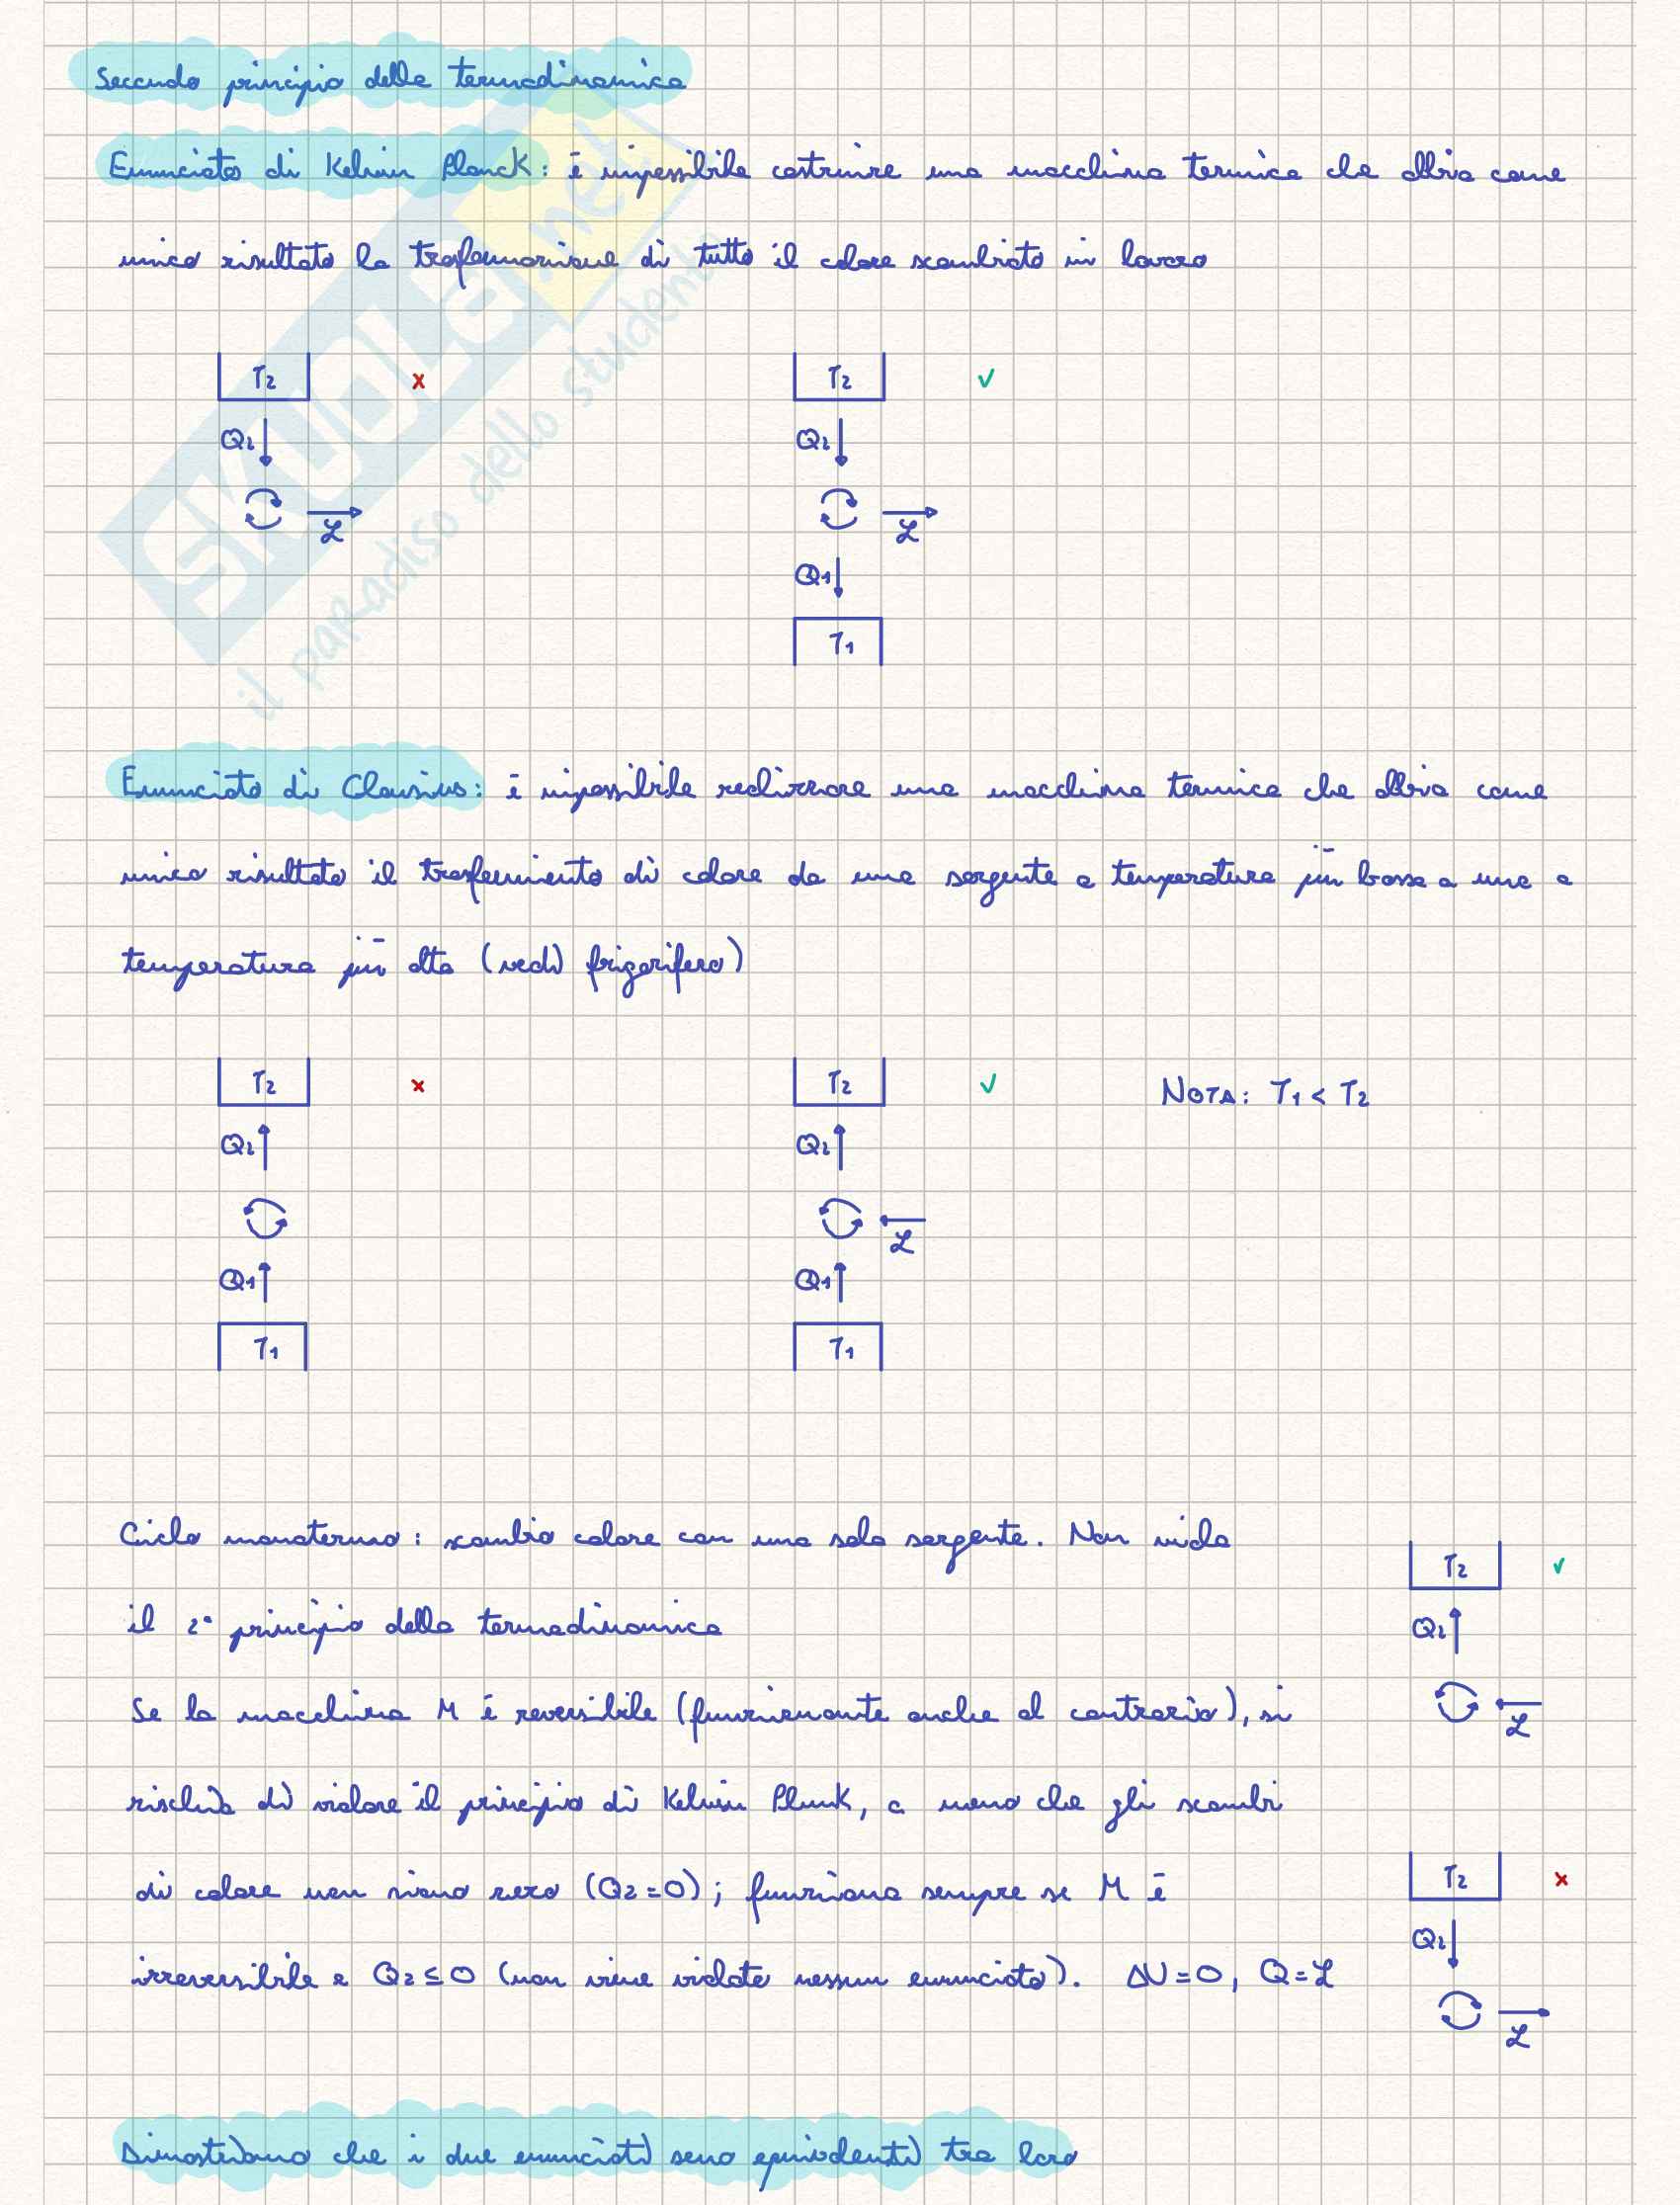 Secondo principio della termodinamica
Enunciato di Kelvin Planck: è impossibile costruire una macchina termica che abbia come
unico risultato la trasformazione di tutto il calore scambiato in lavoro
T2 x T2 ✓
Q2 Q2
L L
Q1
T1
Enunciato di Clausius: è impossibile realizzare una macchina termica che abbia come
unico risultato il trasferimento di calore da una sorgente a temperatura più bassa a una a
temperatura più alta (vedi frigorifero)
T2 x T2 ✓ NOTA: T1 < T2
Q2 Q2
L
Q1 Q1
T1 T1
Ciclo monotermo: scambio calore con una sola sorgente. Non viola
T2 ✓
il 2° principio della termodinamica
Q2
Se la macchina M è reversibile (funzionante anche al contrario), si
L
rischia di violare il principio di Kelvin Plunk, a meno che gli scambi
di calore non siano zero (Q2=0); funziona sempre se M è
T2 x
Q2
irreversibile e Q2≤0 (non viene violato nessun enunciato). ΔU=0, Q=L
L
Dimostriamo che i due enunciati sono equivalenti tra loro
SKUOLA.net
il paradiso dello studente